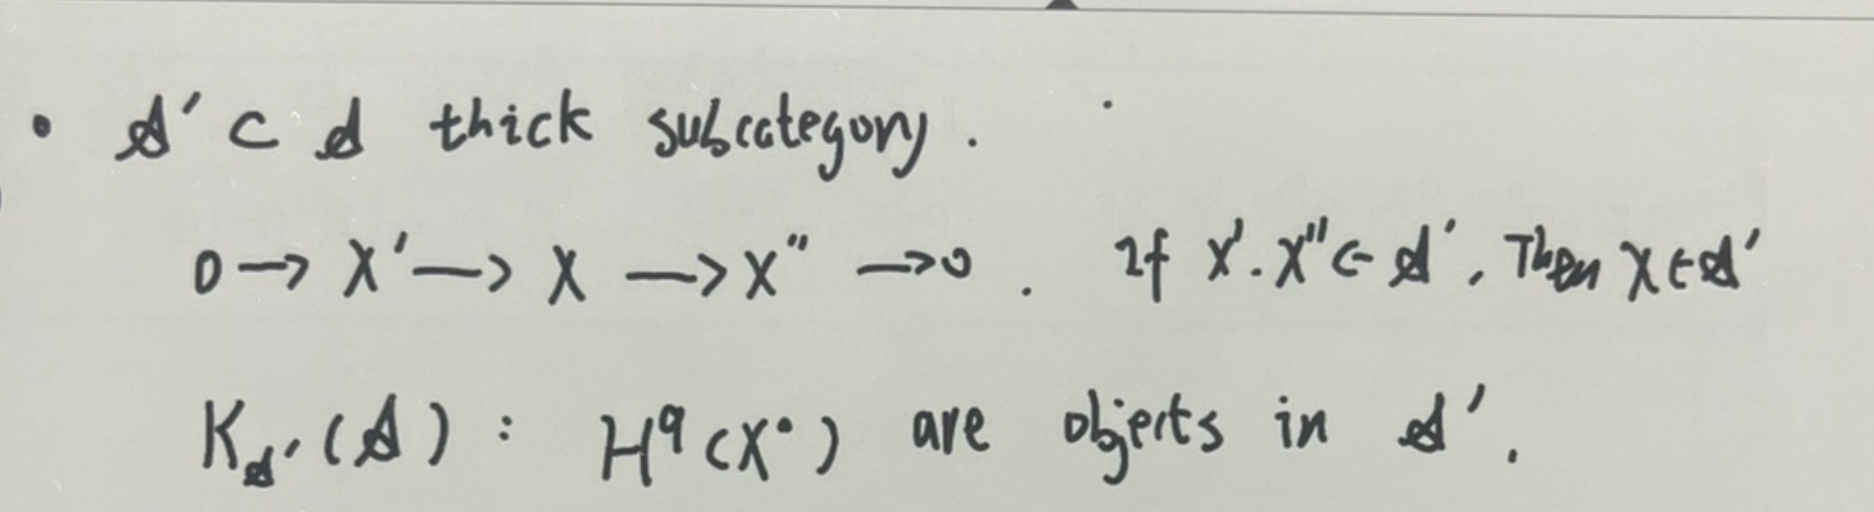 • 𝒜′ ⊂ 𝒜 thick subcategory.
0 → X′ → X → X″ → 0 . If X′. X″ ∈ 𝒜′, Then X ∈ 𝒜′
K_𝒜′(𝒜) : H^q(X^•) are objects in 𝒜′.